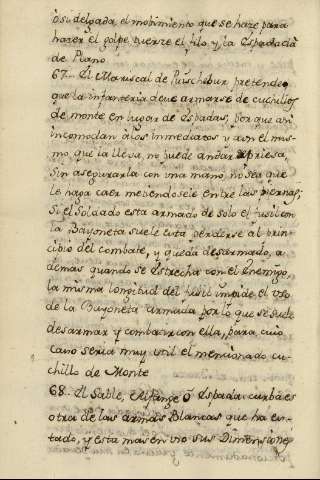 ô si delgada, el mobimiento que se haze para
hazer el golpe tuerze el filo, y la Espada dà
de Plano
67.. El Mariscal de Puischebur pretende,
que la infanteria deue armarse de cuchillos
de monte en lugar de Espadas, por que asi
incomodan à los inmediatos y aun el mis-
mo que la lleva, ni puede andar apriesa,
sin asegurarla con una mano, no sea que
le haga caer metiendosele entre las piernas;
Si el Soldado esta armado de solo el fusil con
la Bayoneta suele esta perderse al prin-
cibio del combate, y queda desarmado, a
demas quando se Estrecha con el Enemigo,
la misma longitud del fusil impide el vso
de la Bayoneta armada por lo que se suele
desarmar y combatir con ella, para cuio
caso seria muy vtil el mencionado cu-
chillo de Monte
68.. El Sable, Alfange ô Espada curba es
otra de las armas Blancas que ha ein-
tado, y esta mas en vso sus Dimensiones